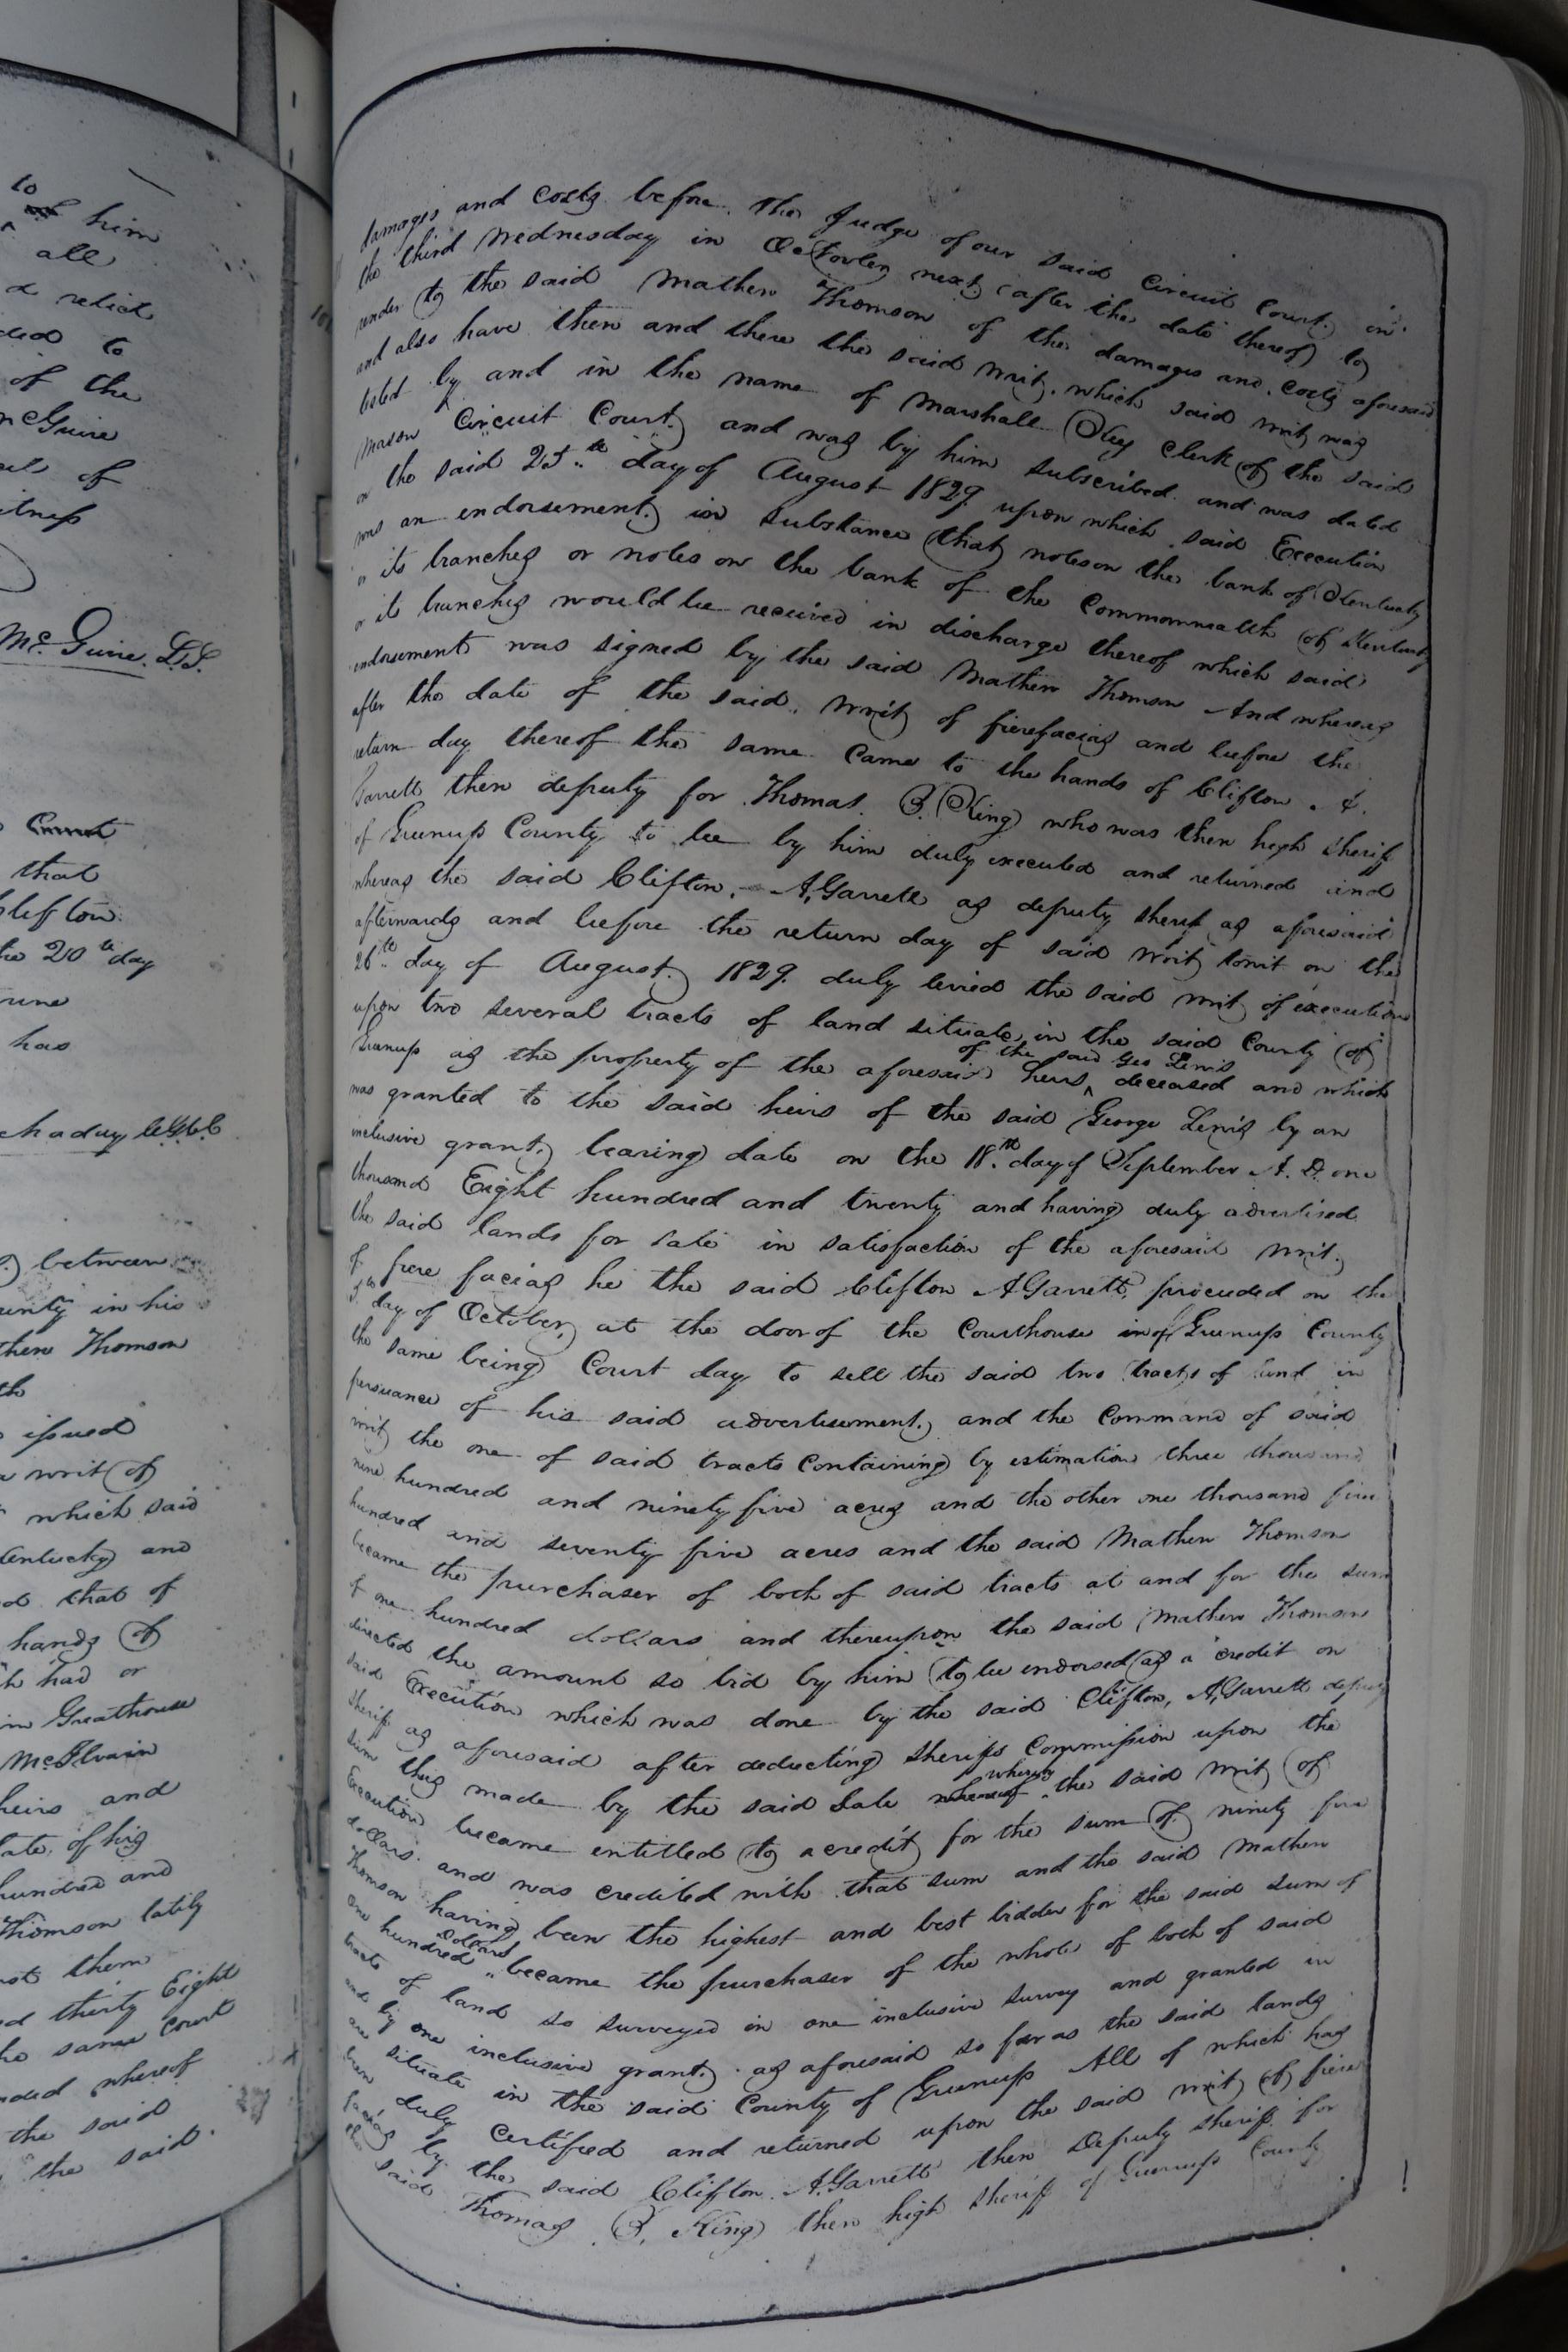 to
him
all
relict
ded to
of the
McGuire
of
McGuire. LS.
Court
that
Clifton
the 20th day
June
has
between
County in his
Thomson
issued
a writ of
which said
Kentucky and
d that of
hands of
h had or
Greathouse
McIlvain
heirs and
late, of his
hundred and
Thomson lately
them
thirty Eight
the same Court
whereof
the said
the said.
damages and Costs before the Judge of our said Circuit Court in
the third Wednesday in October next after the date thereof to
render to the said Mathew Thomson of the damages and costs aforesaid
and also have then and there the said writ. which said writ was
tested by and in the name of Marshall Key Clerk of the said
Mason Circuit Court and was by him subscribed and was dated
on the said 25th day of August 1829 upon which said Execution
was an endorsement in substance that notes on the bank of Kentucky
or its branches or notes on the bank of the Commonwealth of Kentucky
or its branches would be received in discharge thereof which said
endorsement was signed by the said Mathew Thomson And whereas
after the date of the said writ of fierefacias and before the
return day thereof the same came to the hands of Clifton A.
Garrett then deputy for Thomas B. King who was then high sheriff
of Greenup County to be by him duly executed and returned and
whereas the said Clifton A. Garrett as deputy sheriff as aforesaid
afterwards and before the return day of said writ towit on the
26th day of August 1829. duly levied the said writ of execution
upon two several tracts of land situate in the said County of
Greenup as the property of the aforesaid heirs of the said Geo Lewis deceased and which
was granted to the said heirs of the said George Lewis by an
inclusive grant bearing date on the 18th day of September A.D. one
thousand Eight hundred and twenty and having duly advertised
the said lands for sale in satisfaction of the aforesaid writ
of fiere facias he the said Clifton A Garrett, proceeded on the
day of October at the door of the Courthouse in of Greenup County
the same being Court day to sell the said two tracts of land in
persuance of his said advertisement and the Command of said
writ the one of said tracts Containing by estimation three thousand
nine hundred and ninety five acres and the other one thousand five
hundred and seventy five acres and the said Mathew Thomson
became the purchaser of both of said tracts at and for the sum
of one hundred dollars and thereupon the said Mathew Thomson
directed the amount so bid by him to be endorsed as a credit on
said Execution which was done by the said Clifton, A, Garrett deputy
sheriff as aforesaid after deducting sheriffs Commission upon the
sum thus made by the said sale whereof whereby the said writ of
Execution became entitled to a credit for the sum of ninety five
dollars. and was credited with that sum and the said Mathew
Thomson having been the highest and best bidder for the said sum of
one hundred Dollars became the purchaser of the whole of both of said
tracts of land so surveyed in one inclusive survey and granted in
and by one inclusive grant. as aforesaid so far as the said lands
are situate in the said County of Greenup All of which has
been duly Certified and returned upon the said writ of fiere
facias by the said Clifton A. Garrett then Deputy sheriff for
the said Thomas B. King then high sheriff of Greenup County